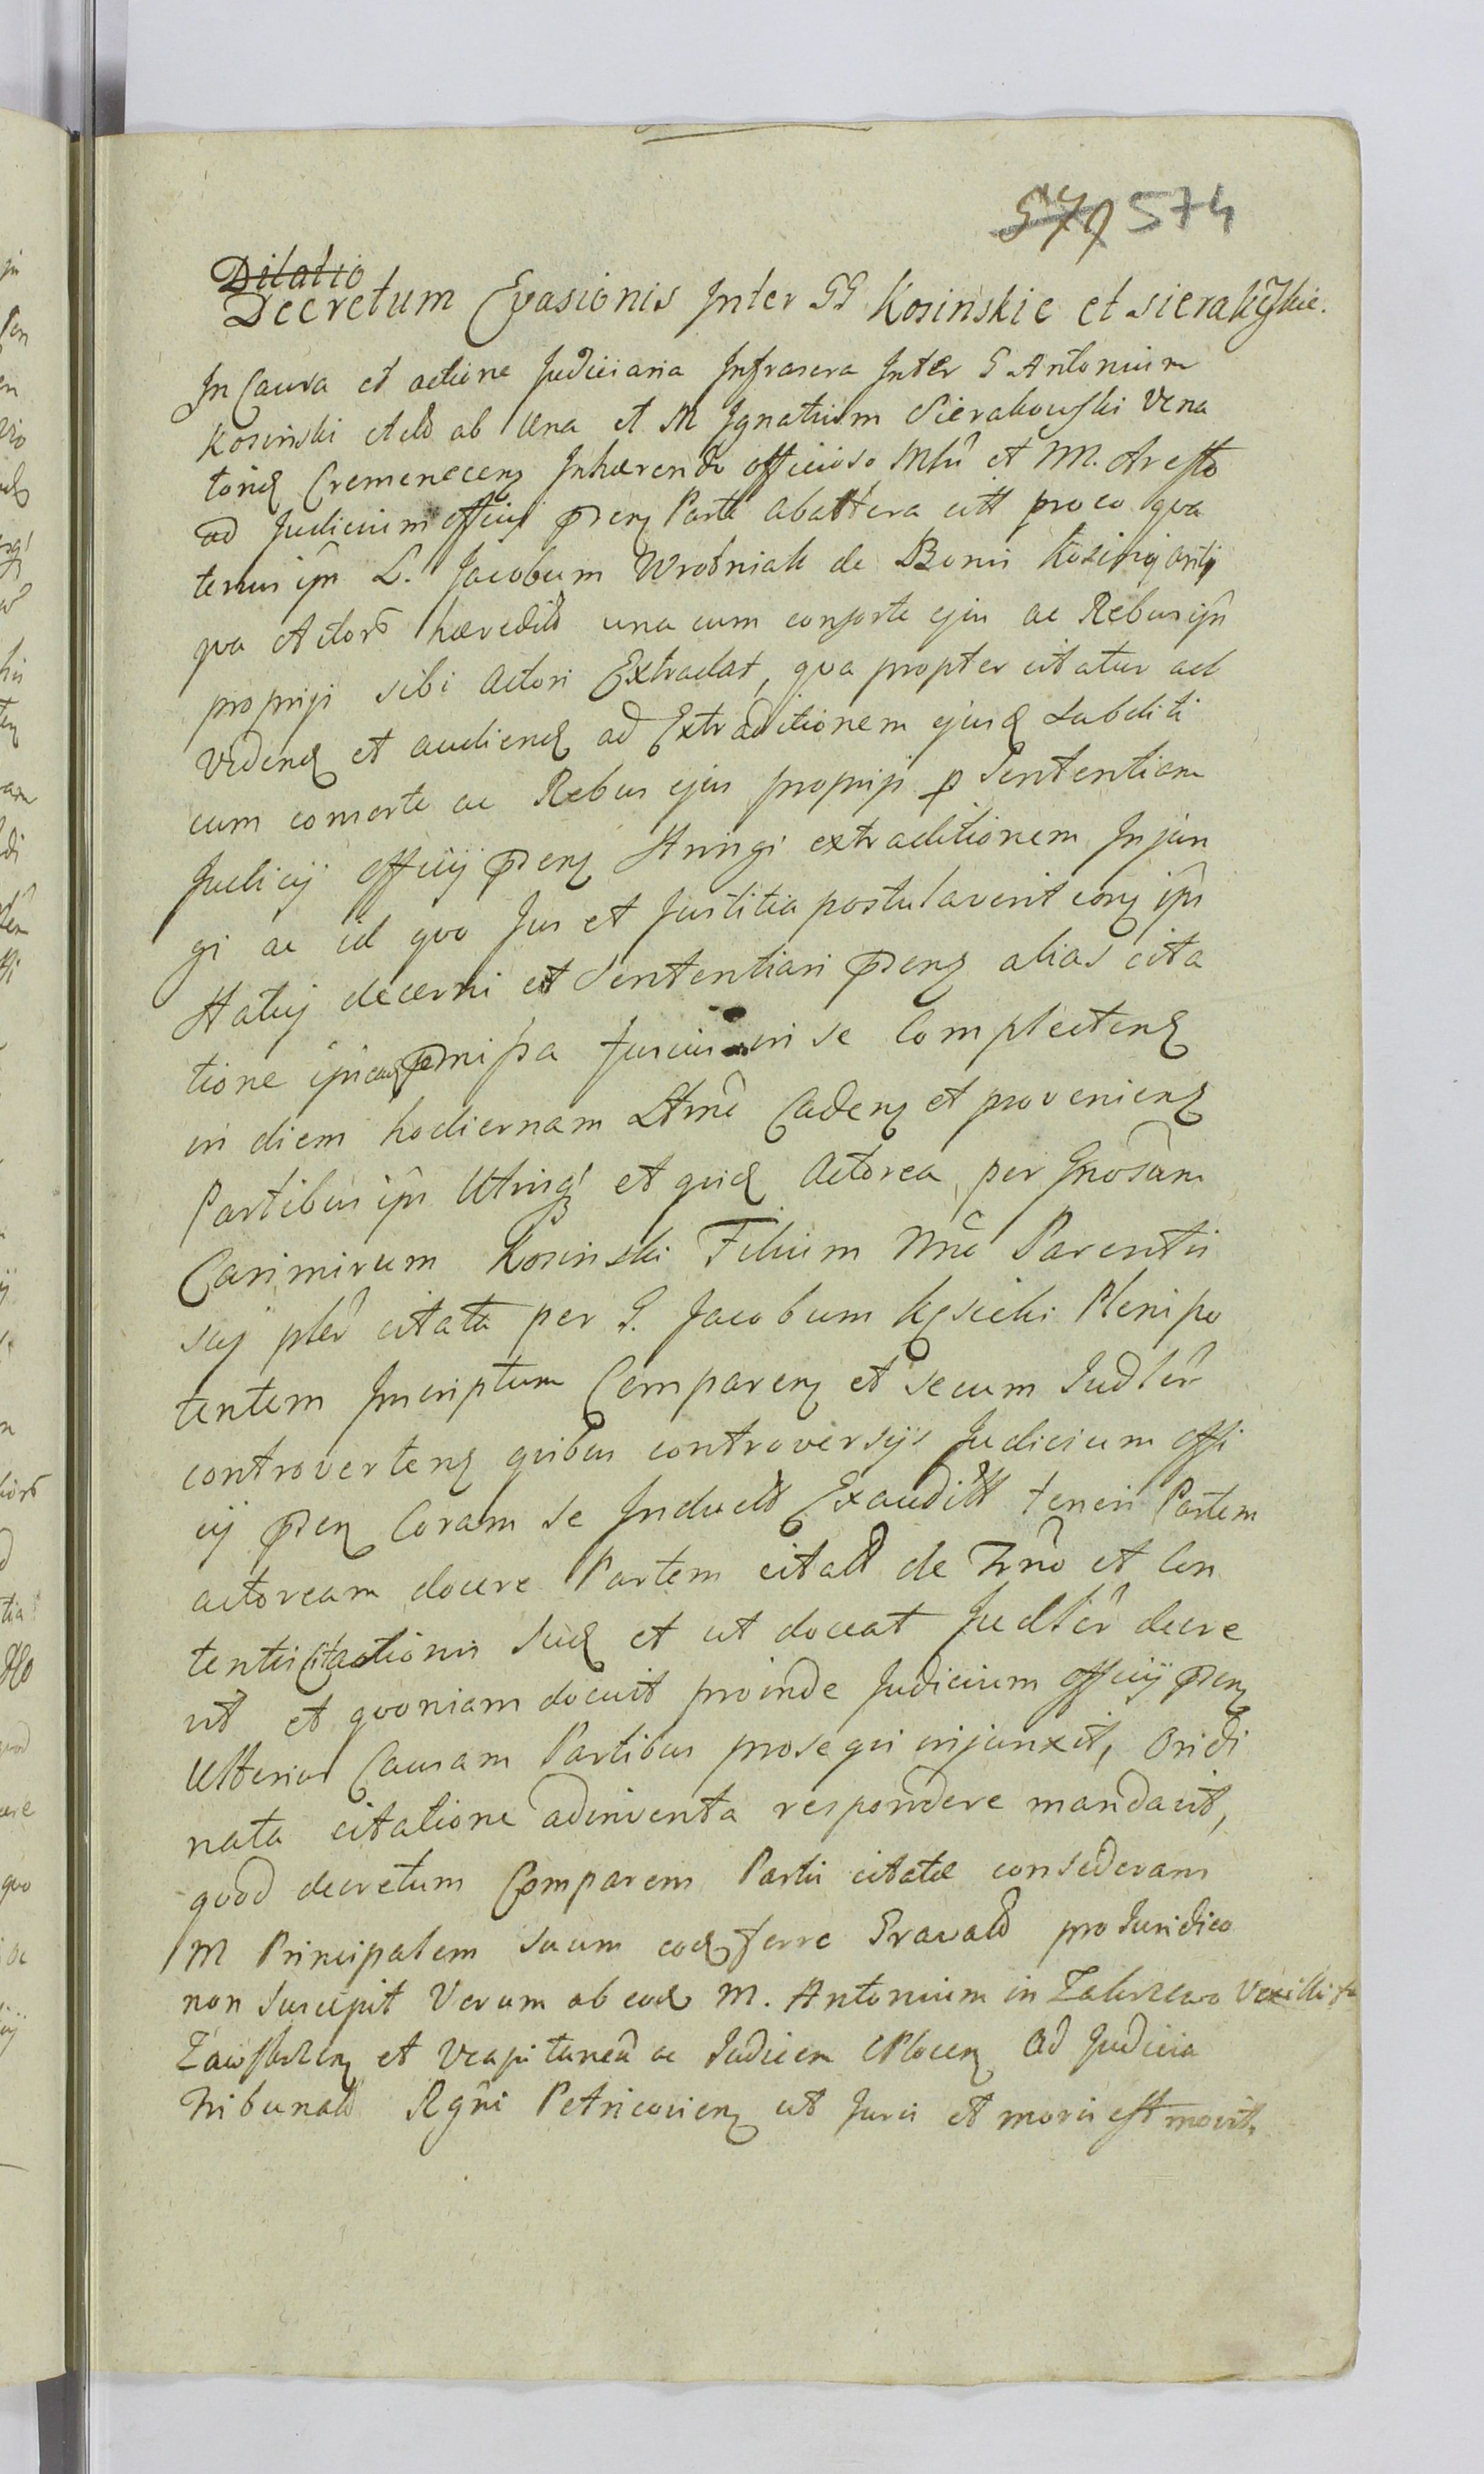 579 574
Dilatio
Decretum Evasionis Inter GG Kosinskie et Sierakoskie.
In Causa et actione Judiciaria Infrasera Inter G Antonium
Kosinski ab una et M Ignatium Sierakowski Vena
torid Cremenecens Inhærendo officioso et M. Aresto
ad Judicium officij Pnens Parte abaltera citt pro eo qua
tenus ipse L. Jacobum Wrobniak de Bonis Kosinij
qua Actoris hæredit una cum consorte ejus ac Rebus ipsi
proprijs sibi Actori Extradat, qua propter citatur ad
vidend et audiend ad Extraditionem ejusd Subditi
cum consorte ac Rebus ejus proprijs p Sententiam
Judicij officij Pnens stringi extraditionem Injun
gi ac id quo Jus et Justitia postulaverit
statuj decerni et Sententiari Pnens alias cita
tione præmissa fusius in se Complectend
in diem hodiernam Cadens et proveniens
Partibus ipsis Utrinq et quid Actorea per Gnosum
Casimirum Kosinski Filium Nne Parentis
suj citata per G. Jacobum Kęsicki Plenipo
tentem Inscriptum Comparens et secum Judlr
controvertens quibus controversijs Judicium offi
cij Pnens Coram se Induct Exaudit teneri Partem
actoream docere Partem citat de Trno et Con
tentis Citationis Sud et ut doceat Judlr decre
vit et quoniam docuit proinde Judicium officij Pnens
Ulterius Causam Partibus prosequi injunxit, Ordi
nata citatione adinventa respondere mandavit,
quod decretum Comparens Partis citatæ considerans
M Principalem suum eod ferre Gravat pro Juridico
non suscepit Verum ab eod M. Antonium in Zakrzewo Vexilli fe
Zawskrzen et Vcapitaneu ac Judicem Plocen Ad Judicia
Tribunal Rgni Petricovien ut Juris et moris est movit.